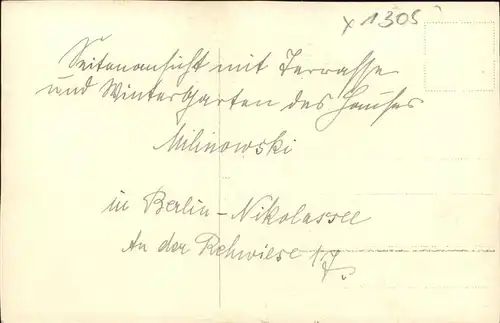 x 1305
Seitenansicht mit Terrasse
und Wintergarten des Hauses
Milinowski
in Berlin-Nikolassee
An der Rehwiese